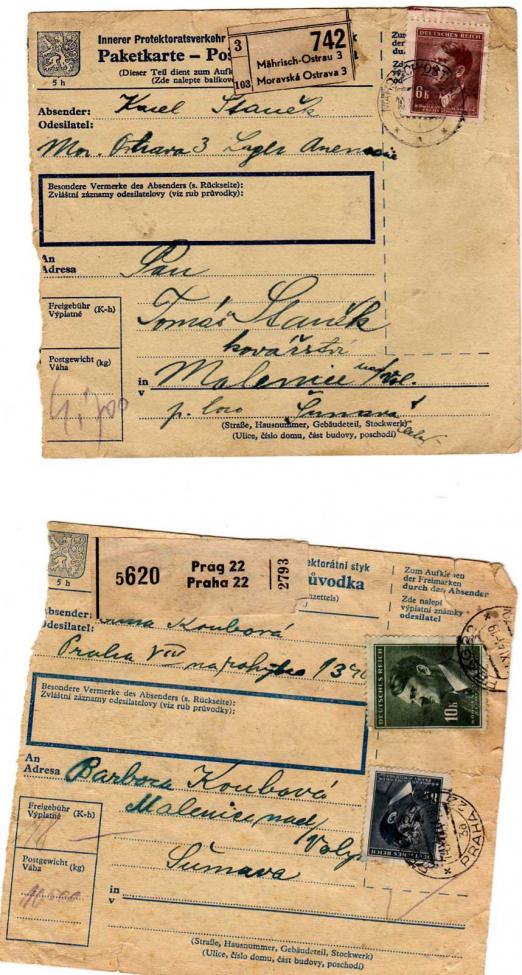 Innerer Protektoratsverkehr
Paketkarte – Po
(Dieser Teil dient zum
(Zde nalepte
5 h
3
103
742
Mährisch-Ostrau 3
Moravská Ostrava 3
DEUTSCHES REICH
6 K
Absender: Karel Staněk
Odesílatel:
Mor. Ostrava 3 Lager
Besondere Vermerke des Absenders (s. Rückseite):
Zvláštní záznamy odesilatelovy (viz rub průvodky):
An
Adresa
Pan
Tomáš Staněk
kovářství
Freigebühr (K-h)
Výplatné
Postgewicht (kg)
Váha
in
v
Malenice nad/Vol.
p. loco Šumava
(Straße, Hausnummer, Gebäudeteil, Stockwerk)
(Ulice, číslo domu, část budovy, poschodí)
5 h
5620
Prag 22
Praha 22
2793
ektorátní styk
ůvodka
nzettels)
Zum Aufkleben
der Freimarken
durch den Absender
Zde nalepí
výplatní známky
odesílatel
bsender:
Odesilatel:
Koubová
Praha VIII
Besondere Vermerke des Absenders (s. Rückseite):
Zvláštní záznamy odesilatelovy (viz rub průvodky):
DEUTSCHES REICH
10 K
An
Adresa
Barbora Koubová
Malenice nad
Šumava
DEUTSCHES REICH
PRAHA 22
Freigebühr (K-h)
Výplatné
Postgewicht (kg)
Váha
10500
in
v
(Straße, Hausnummer, Gebäudeteil, Stockwerk)
(Ulice, číslo domu, část budovy, poschodí)